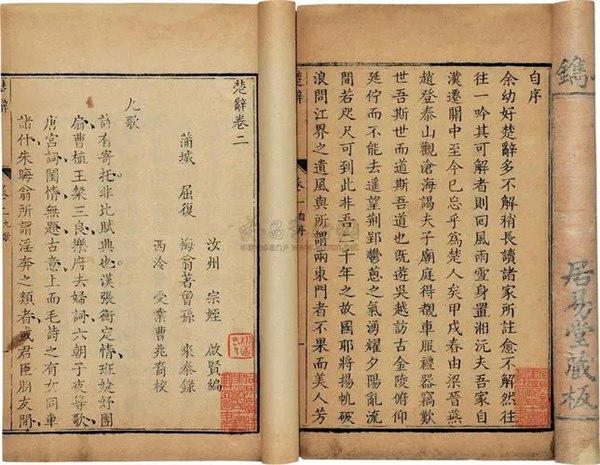 鐫
居易堂藏板
自序
余幼好楚辭多不解稍長讀諸家所註愈不解然往
往一吟其可解者則回風雨雲身置湘沅夫吾家自
漢遷關中至今已忘乎爲楚人矣甲戌春由梁晉燕
趙登泰山觀滄海謁夫子廟庭得覩車服禮器竊歎
世吾斯世而道斯吾道也既遊吳越訪古金陵俯仰
延佇而不能去遙望荆郢鬱蔥之氣湧耀夕陽亂流
間若咫尺可到此非吾二千年之故國耶將揚帆破
浪問江界之遺風與所謂兩東門者不果而美人芳
楚辭 卷一自序
楚辭卷二
汝州 宗姪 啟賢編
蒲城 屈復 悔翁著曾孫 來泰錄
西泠 受業曹兆裔校
九歌
詩有寄托非比賦典也漢張衡定情班婕妤團
扇曹植王粲三良樂府去婦詞六朝子夜等歌
唐宮詞閨情無題古意上而毛詩之有女同車
諸什朱晦翁所謂淫奔之類者或君臣朋友間
楚辭 卷二九歌 一